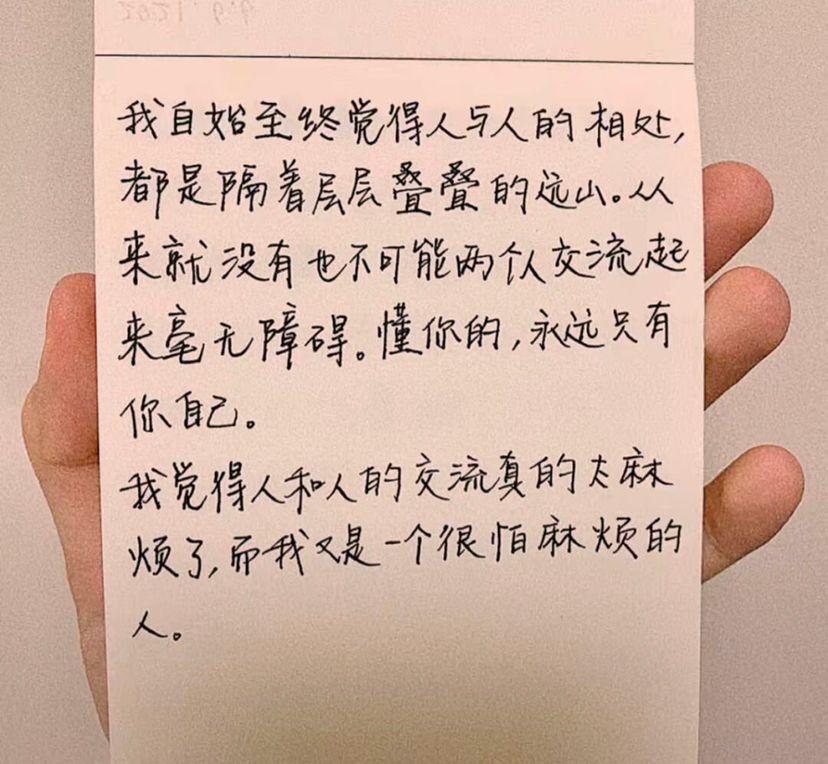 我自始至终觉得人与人的相处,
都是隔着层层叠叠的远山。从
来就没有也不可能两个人交流起
来毫无障碍。懂你的,永远只有
你自己。
我觉得人和人的交流真的太麻
烦了,而我又是一个很怕麻烦的
人。